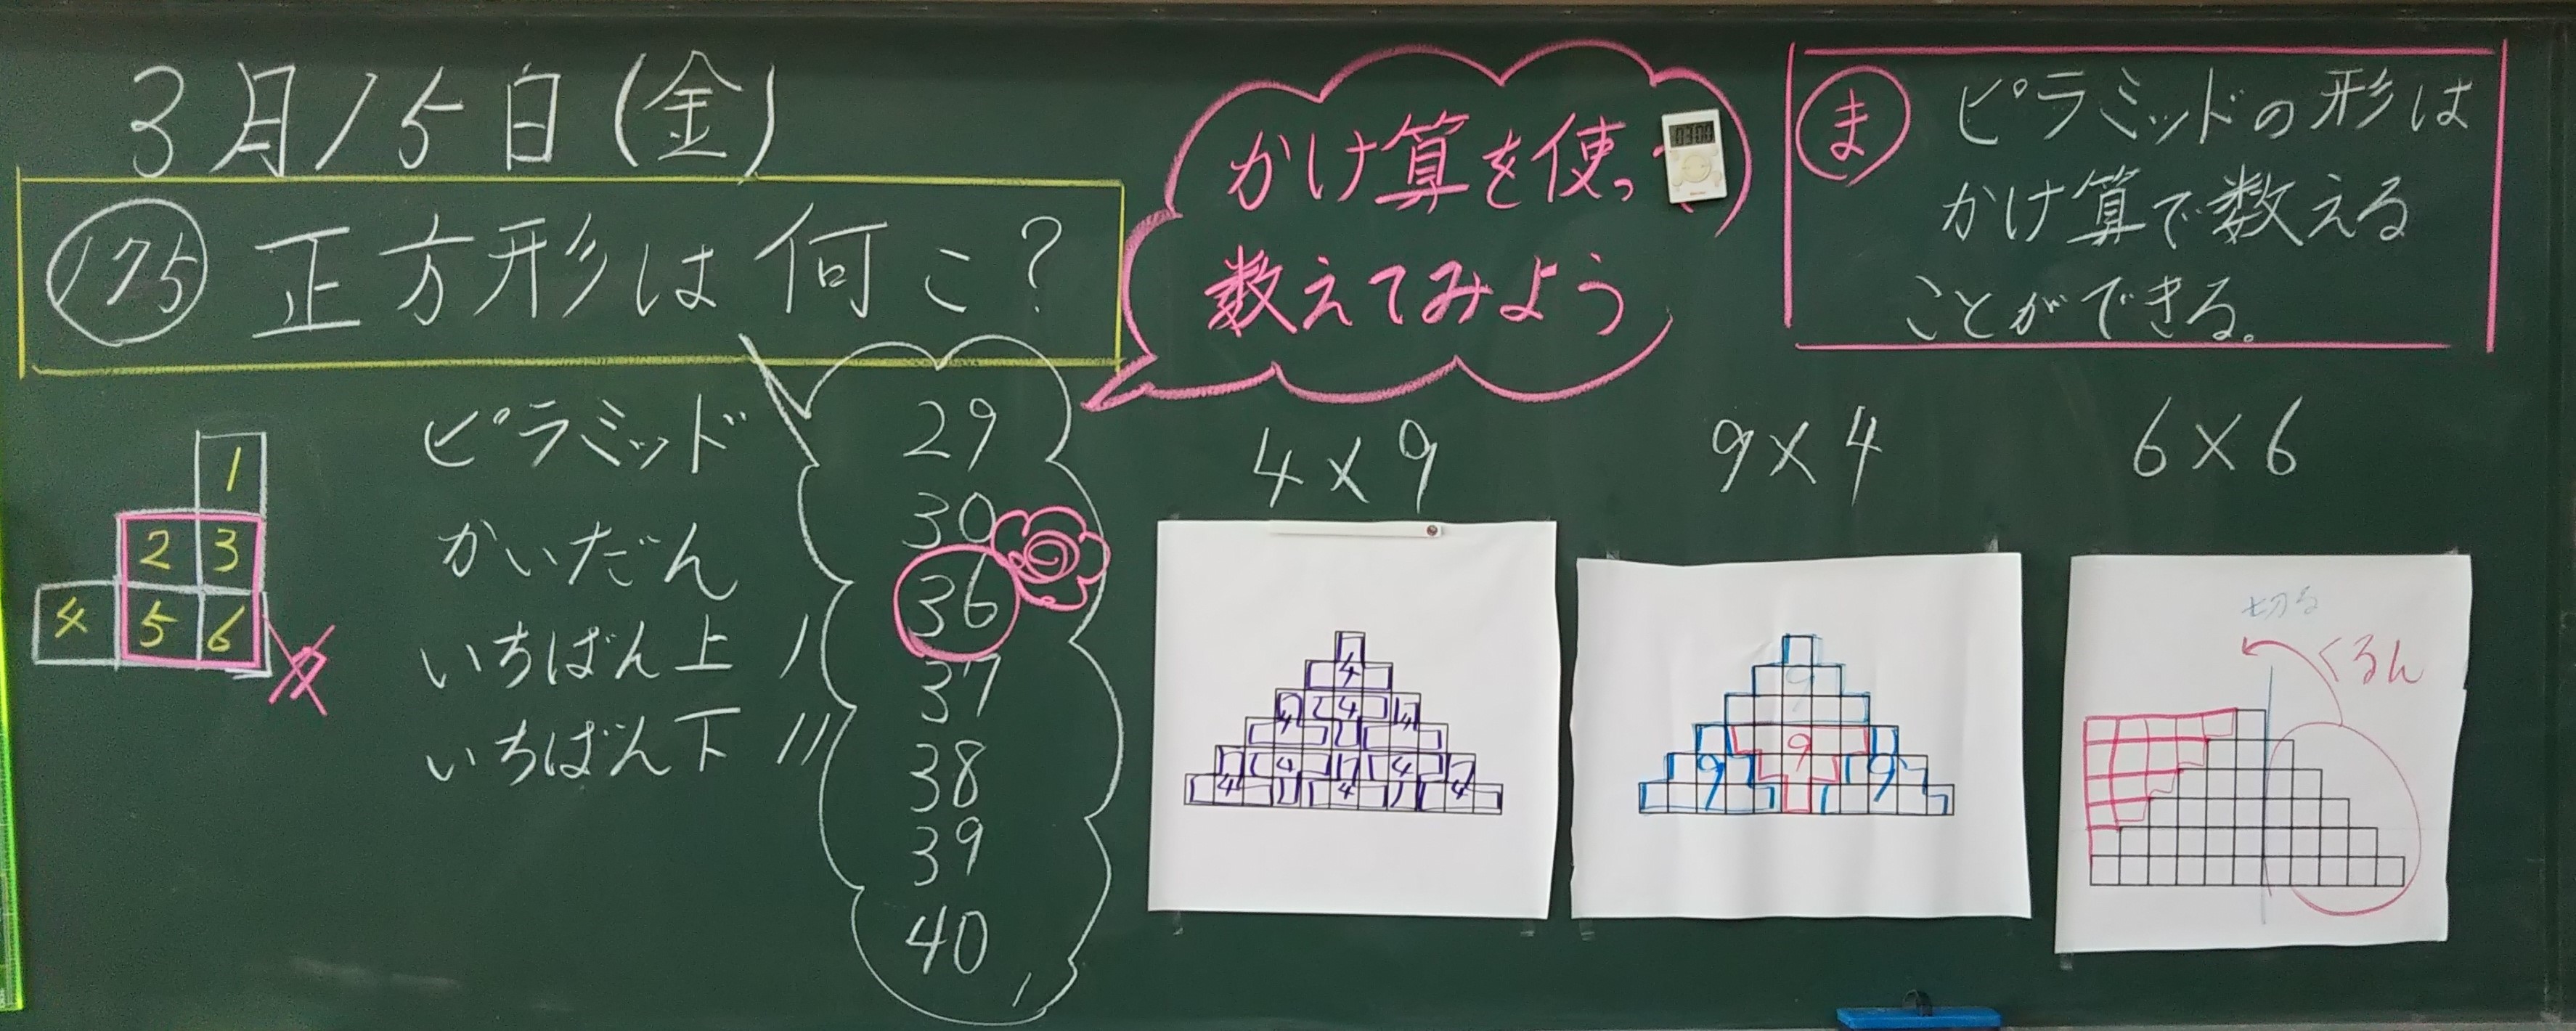 3月15日(金)
175 正方形は何こ?
1
2 3
4 5 6
ピラミッド
かいだん
いちばん上 1
いちばん下 11
29
30
36
37
38
39
40
かけ算を使っ
数えてみよう
ま ピラミッドの形は
かけ算で数える
ことができる。
4×9
4
4 4 4
4 4
4 4 4
9×4
9
9
9 9
6×6
切る
くるん